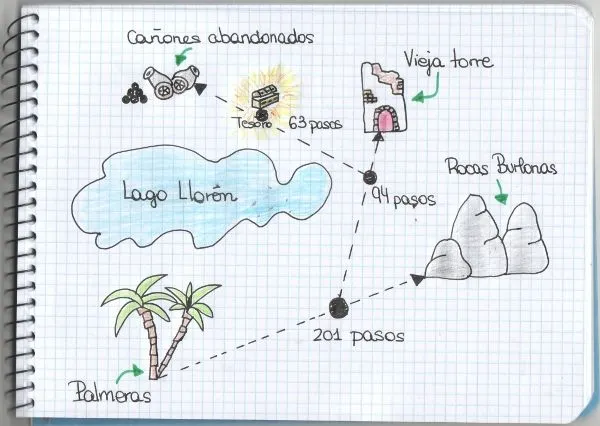 Cañones abandonados
Vieja torre
Tesoro 63 pasos
Rocas Burlonas
Lago Llorón
94 pasos
201 pasos
Palmeras